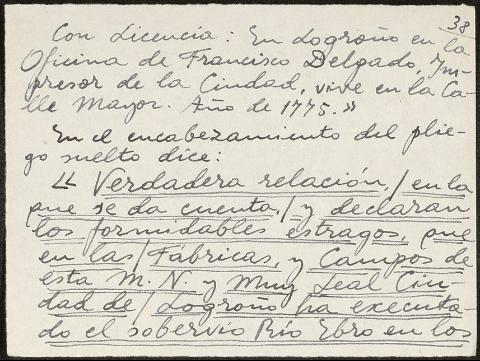 38
Con Licencia: En Logroño en la
Oficina de Francisco Delgado, Im-
presor de la Ciudad, vive en la Ca-
lle Mayor. Año de 1775.»
En el encabezamiento del plie-
go suelto dice:
« Verdadera relación, / en la
que se da cuenta, / y declaran
los formidables estragos, que
en las / Fábricas, y Campos de
esta M. N. y Muy Leal Ciu-
dad de / Logroño ha executa-
do el sobervio Río Ebro en los